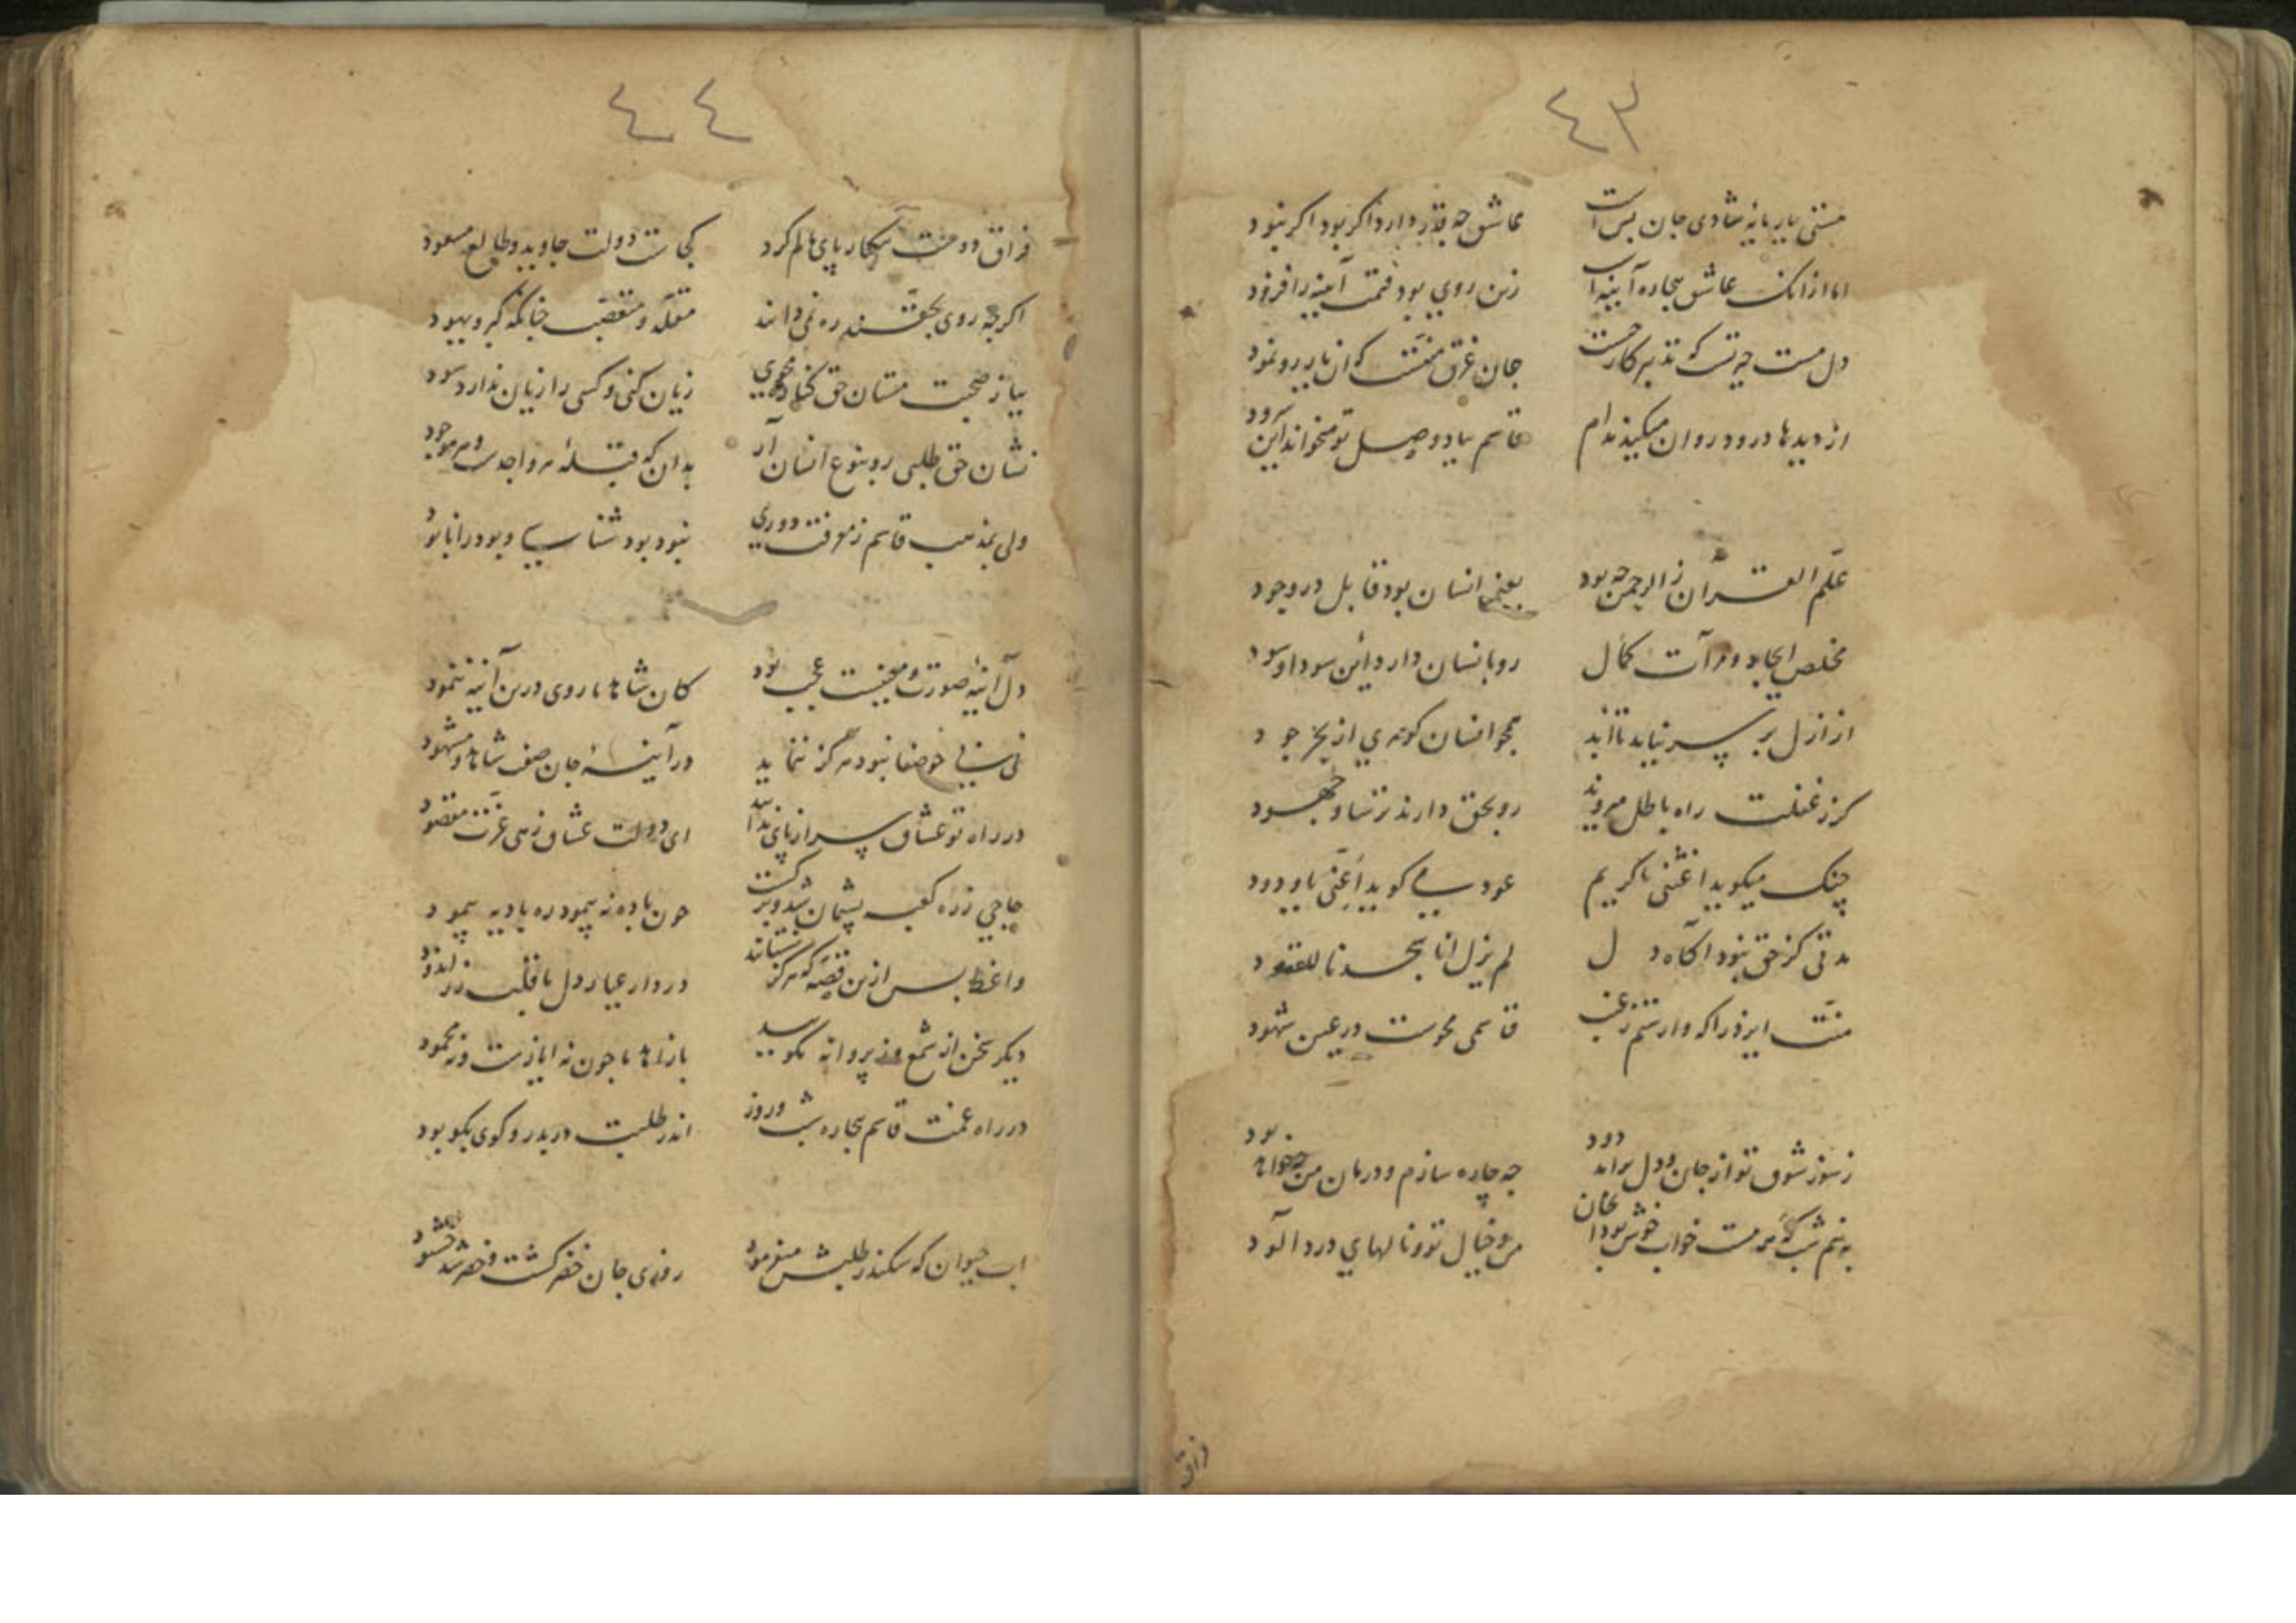 ٤٣
هستی یار مایهٔ شادی جان بس است عاشق چه قدر دارد اگر بود اگر نبود
اما ازانک عاشق بیچاره آینه است زین روی بود قیمت آیینه را فزود
دل مست حیرتست که تدبیر کار چیست جان غرق منتست که آن یار رو نمود
از دیدها درود روان میکند مدام قاسم بیاد وصل تو میخواند این سرود
علّم القرآن ز الرحمن چه بود یعنی انسان بود قابل در وجود
مخلص ایجاد و مرآت کمال رو بانسان دارد این سودا و سود
از ازل بر سر نیاید تا ابد همجو انسان کوهری از بحر جود
کرز غفلت راه باطل میروند رو بحق دارند ترسا و جهود
چنک میکوید اغثنی یا کریم عود می کوید اعنّی یا ودود
مدتی کز حق نبود آکاه دل لم یزل انا بحسدنا للعقود
منّت ایزد را که وارستم ز غیب قاسمی محوست در عین شهود
ز سوز شوق تو از جان و دل برآمد دود جه چاره سازم و درمان من چه خواهد بود
به نیم شب که همه مست خواب خوش بودان من و خیال تو و نالهای درد آلود
فراق
٤٤
فراق دوست بیکبار پای مالم کرد کجاست دولت جاوید و طالع مسعود
اکرچه روی بحقند ره نمی دانند مقلّد و متعصّب جنانکه کبر و یهود
بیاز صحبت مستان حق کناره مجوی زیان کنی و کسی را زیان ندارد سود
نشان حق طلبی رو بنوع انسان آر بدان که قبلهٔ هر واجدست و هر موجود
ولی بمذهب قاسم ز معرفت دوری نبود بود شناسی و بود را نابود
دل آینهٔ صورت و معنیست عجب بود کان شاهد ما روی درین آینه ننمود
نی نی جو صفا نبود هرکز ننماید در آینهٔ جان صفت شاهد و مشهود
در راه تو عشاق سر از پای ندانند ای دولت عشاق زهی عزت مقصود
حاجی ز ره کعبه پشیمان شد و برکشت جون باده نه پیمود ره بادیه پیمود
واعظ بس ازین قصّه که هرکز نستانند در دار عیار دل ما قلب زراندود
دیکر سخن از شمع و ز پروانه مکویید بازآ ما جون نه ایازست و نه محمود
در راه غمت قاسم بیچاره شب و روز اندر طلبت دربدر و کوی بکو بود
اب حیوان که سکندر طلبش میفرمود روزی جان خضر کشت و خضر شد خشنود